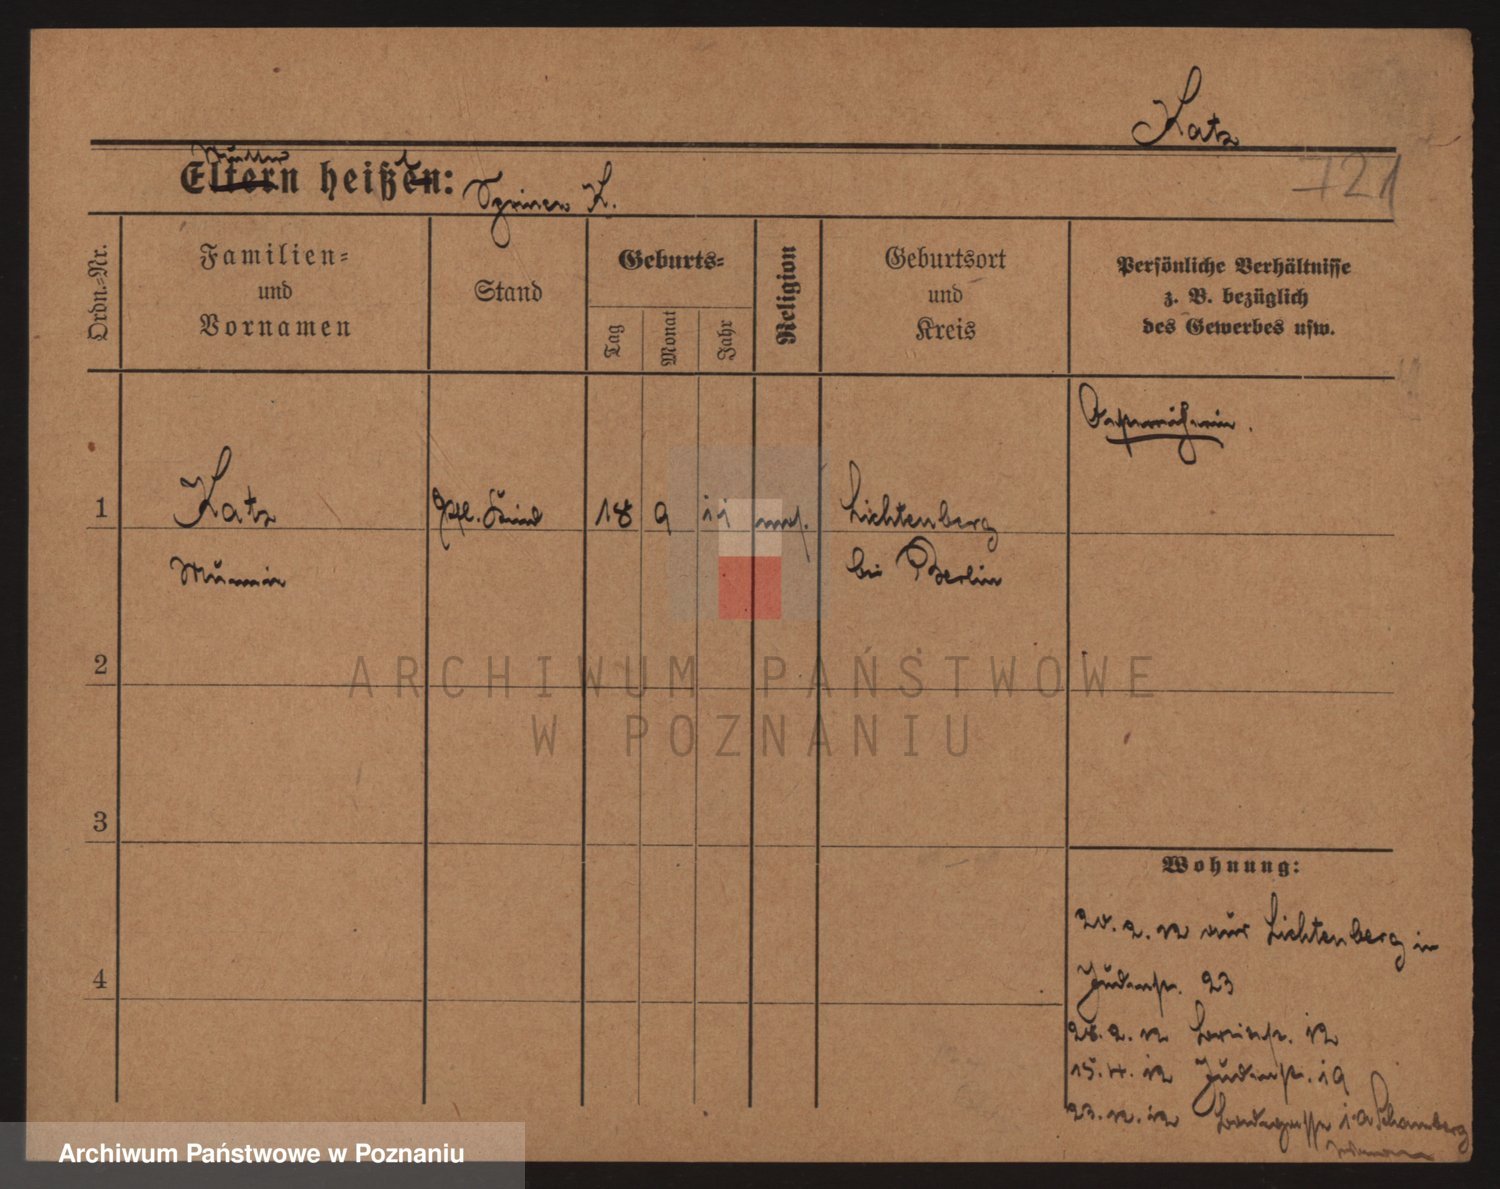 Katz
Mutter
Eltern heißen:
K.
721
Ordn.-Nr.
Familien=
und
Vornamen
Stand
Geburts=
Tag
Monat
Jahr
Religion
Geburtsort
und
Kreis
Persönliche Verhältnisse
z. B. bezüglich
des Gewerbes usw.
1
Katz
18 9 11
Lichtenberg
bei Berlin
2
ARCHIWUM PAŃSTWOWE
W POZNANIU
3
4
Wohnung:
20. 2. 12 aus Lichtenberg in
Judenstr. 23
28. 2. 12 12
15. 4. 12 Judenstr. 19
23. 12. 12
Archiwum Państwowe w Poznaniu